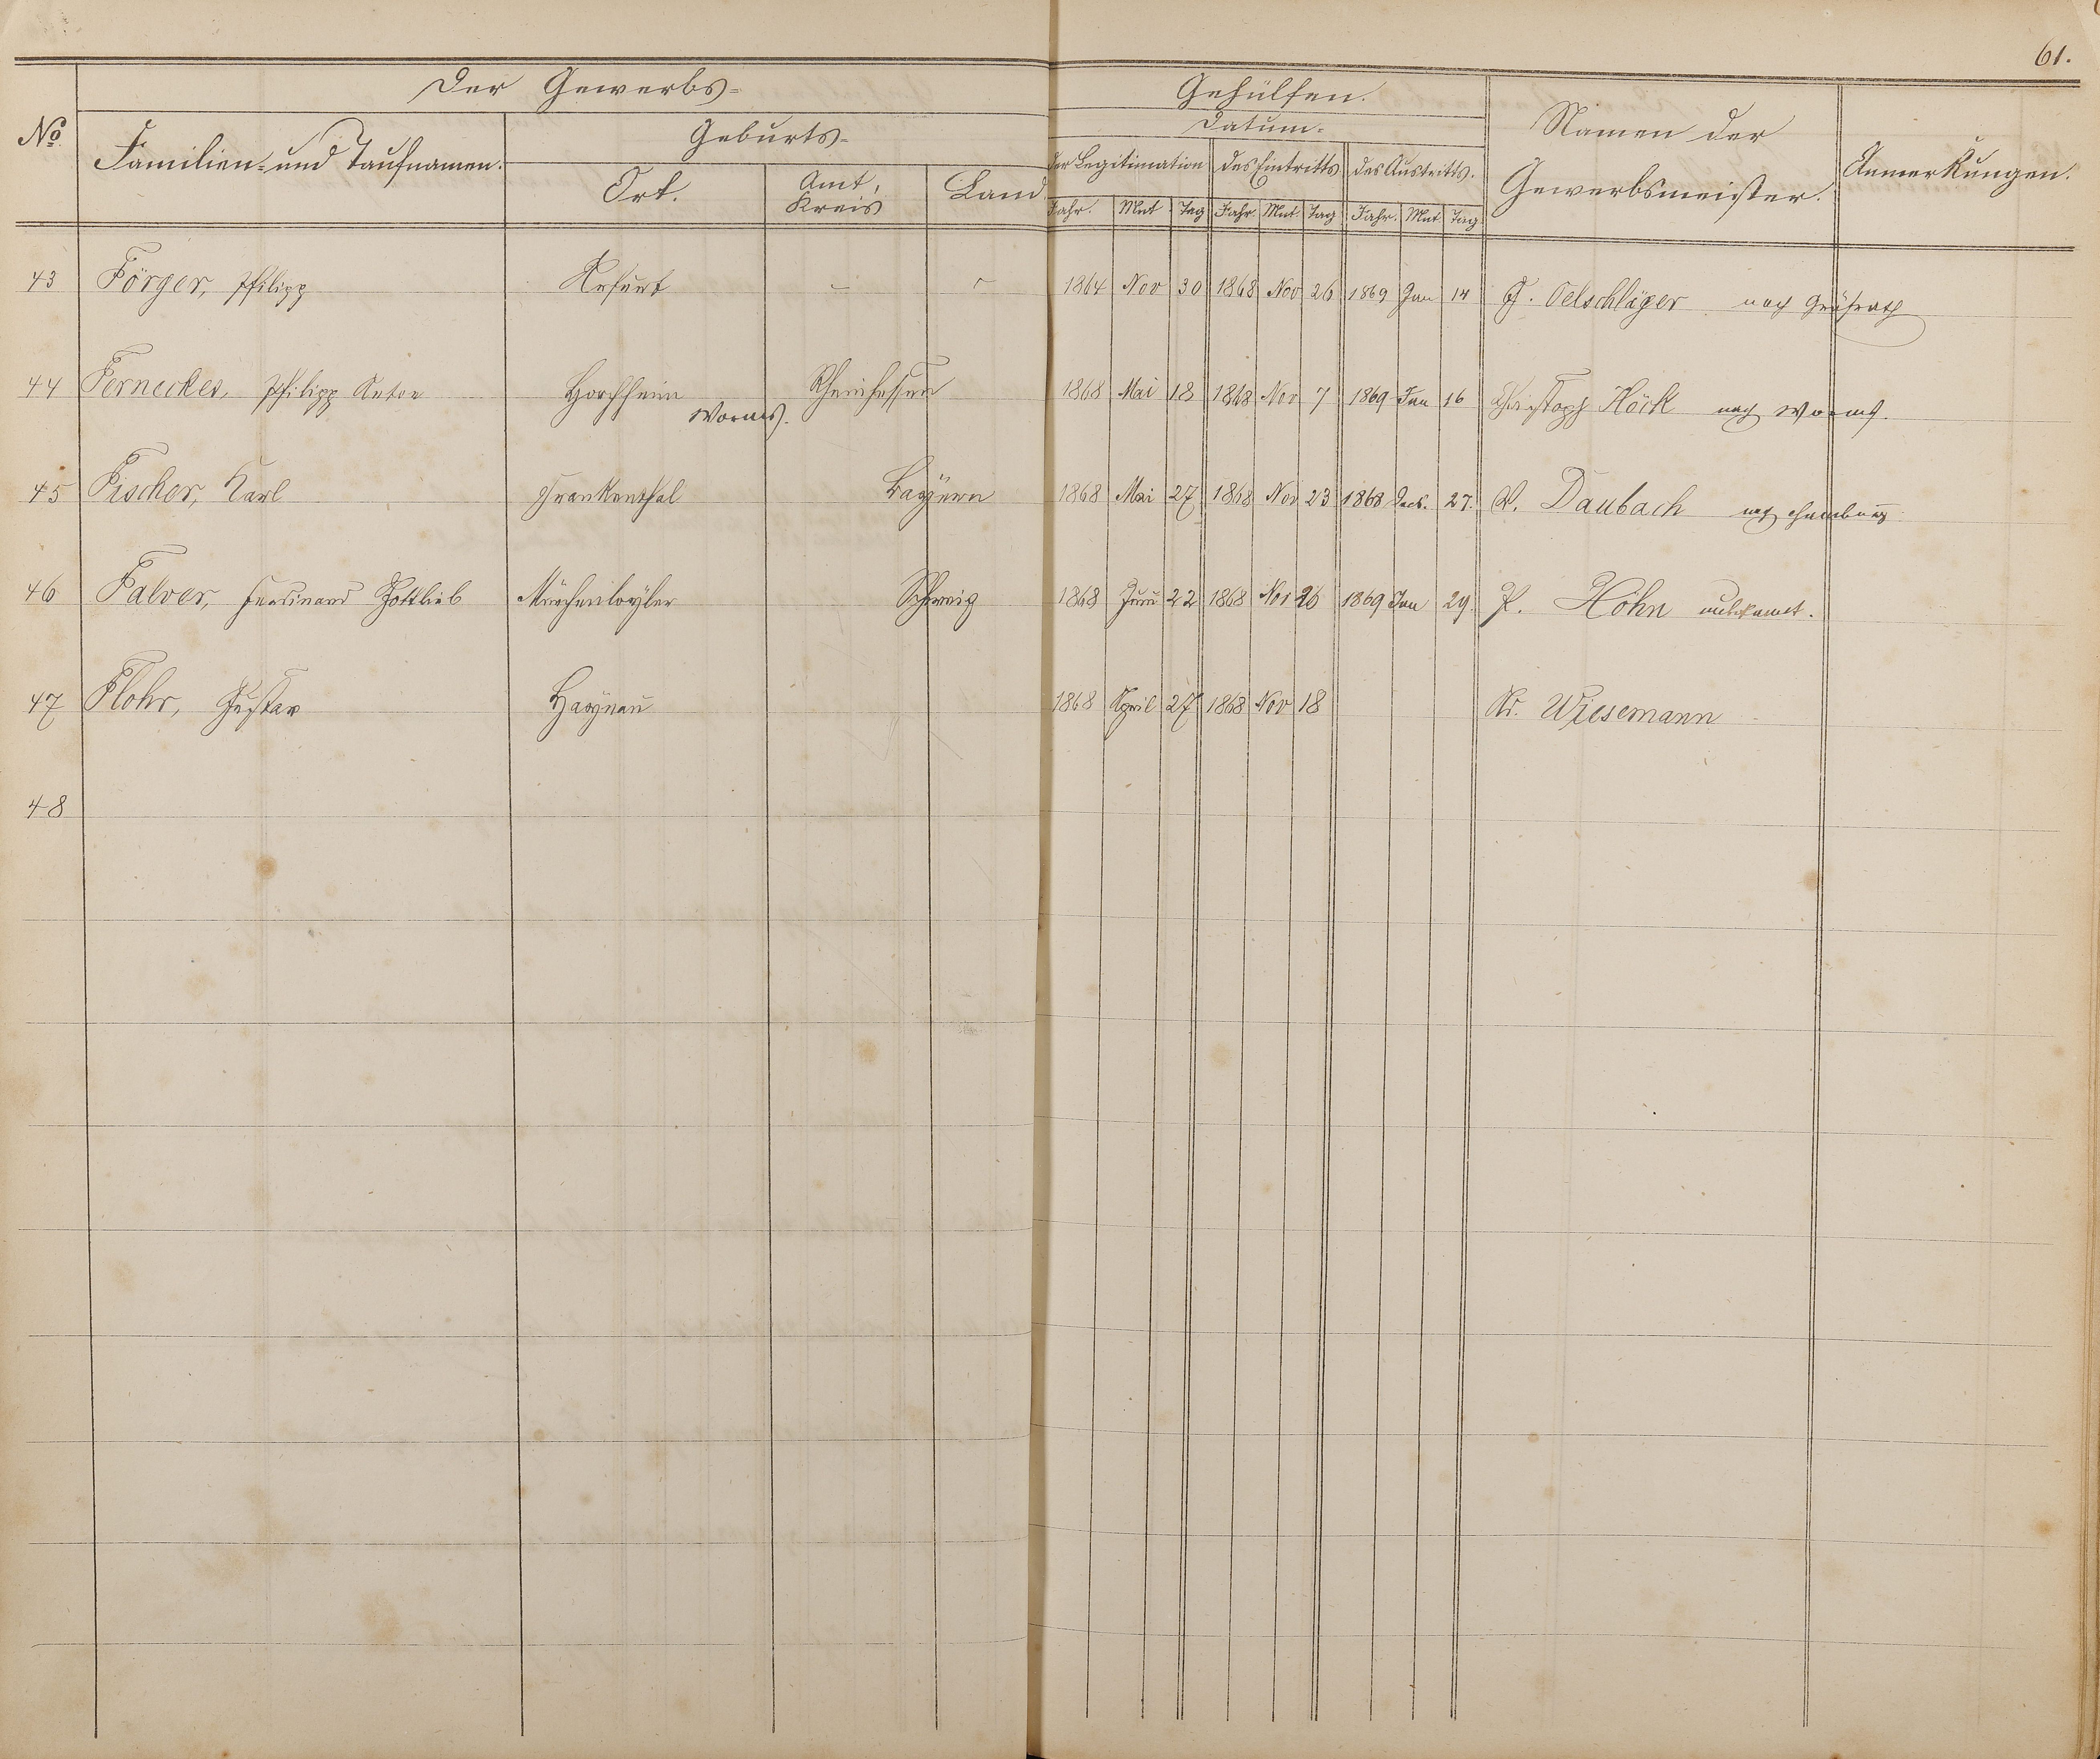 61.
Der Gewerbs=
Gehülfen.
No.
Familien- und Taufnamen.
Geburts-
Datum-
Namen der
Gewerbsmeister.
Anmerkungen.
Ort.
Amt,
Kreis
Land
der Legitimation
des Eintritts
des Austritts.
Jahr. Mnt Tag Jahr. Mnt. Tag Jahr. Mnt Tag
43 Förger, Philipp Erfurt - - 1864 Nov 30 1868 Nov 26 1869 Jan 14 Oelschläger nach Gräfrath
44 Fernecker, Philipp Anton Horchheim Rheinhessen 1868 Mai 18 1868 Nov 7 1869 Jan 16 Christoph Höck nach Worms.
Worms.
45 Fischer, Karl Frankenthal Bayern 1868 Mai 27 1868 Nov 23 1868 Dec. 27. Daubach nach Hamburg
46 Falver, Ferdinand Gottlieb Schweiz 1868 Juni 22 1868 Nov 26 1869 Jan 29. P. Höhn unbekannt.
47 Flohr, Gustav Haynau 1868 April 27 1868 Nov 18 Wiesemann
48